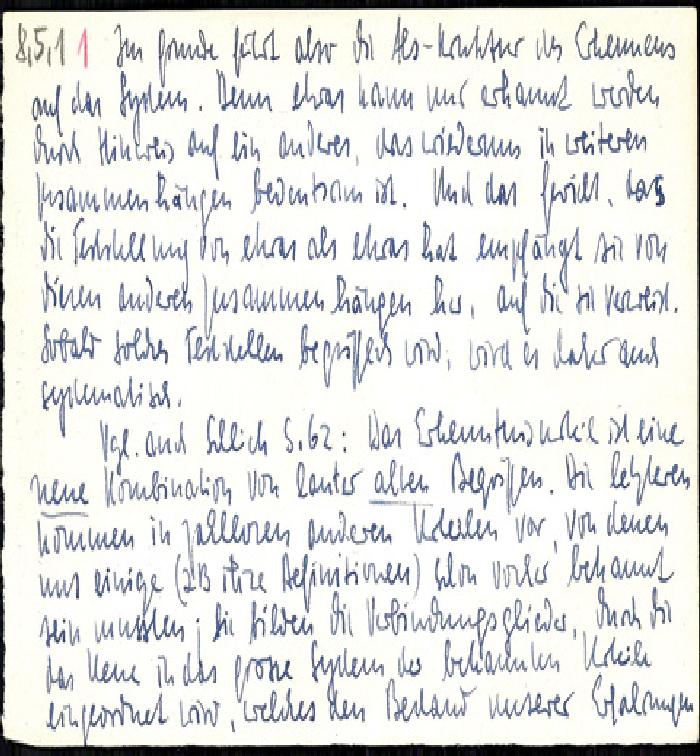 8,5,1 1 Im Grunde führt also die Als-Struktur des Erkennens
auf das System. Denn etwas kann nur erkannt werden
durch Hinweis auf ein anderes, das wiederum in weiteren
Zusammenhängen bedeutsam ist. Und das Gewicht, das
die Feststellung von etwas als etwas hat empfängt sie von
diesen anderen Zusammenhängen her, auf die sie verweist.
Sobald solches Feststellen begrifflich wird, wird es daher auch
systematisch.
Vgl. auch Schlick S. 62: Das Erkenntnisurteil ist eine
neue Kombination von lauter alten Begriffen. Die letzteren
kommen in zahllosen anderen Urteilen vor, von denen
uns einige (zB ihre Definitionen) schon vorher bekannt
sein mussten; sie bilden die Verbindungsglieder, durch die
das Neue in das grosse System der bekannten Urteile
eingeordnet wird, welches den Bestand unserer Erfahrungen